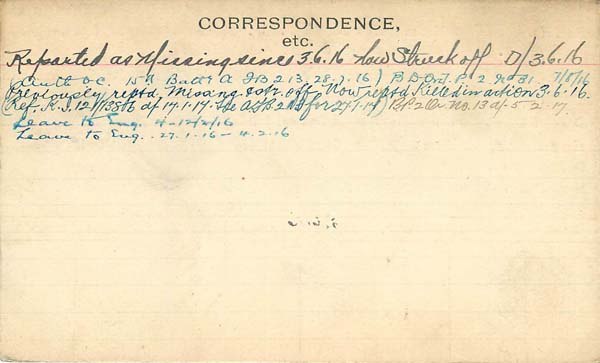 CORRESPONDENCE,
etc.
Reported as Missing since 3.6.16 now Struck off D/3.6.16
(Auth O.C. 15th Battn A B 213, 28.7.16) P 2 No 31 7/8/16
Previously reptd. Missing & str. off. Now reptd Killed in action 3.6.16.
(Ref. d/ 17.1.17. for 27/1/17) No. 13 d/- 5 2.17.
Leave to Eng. 4-12/2/16
Leave to Eng. 27.1.16 - 4.2.16